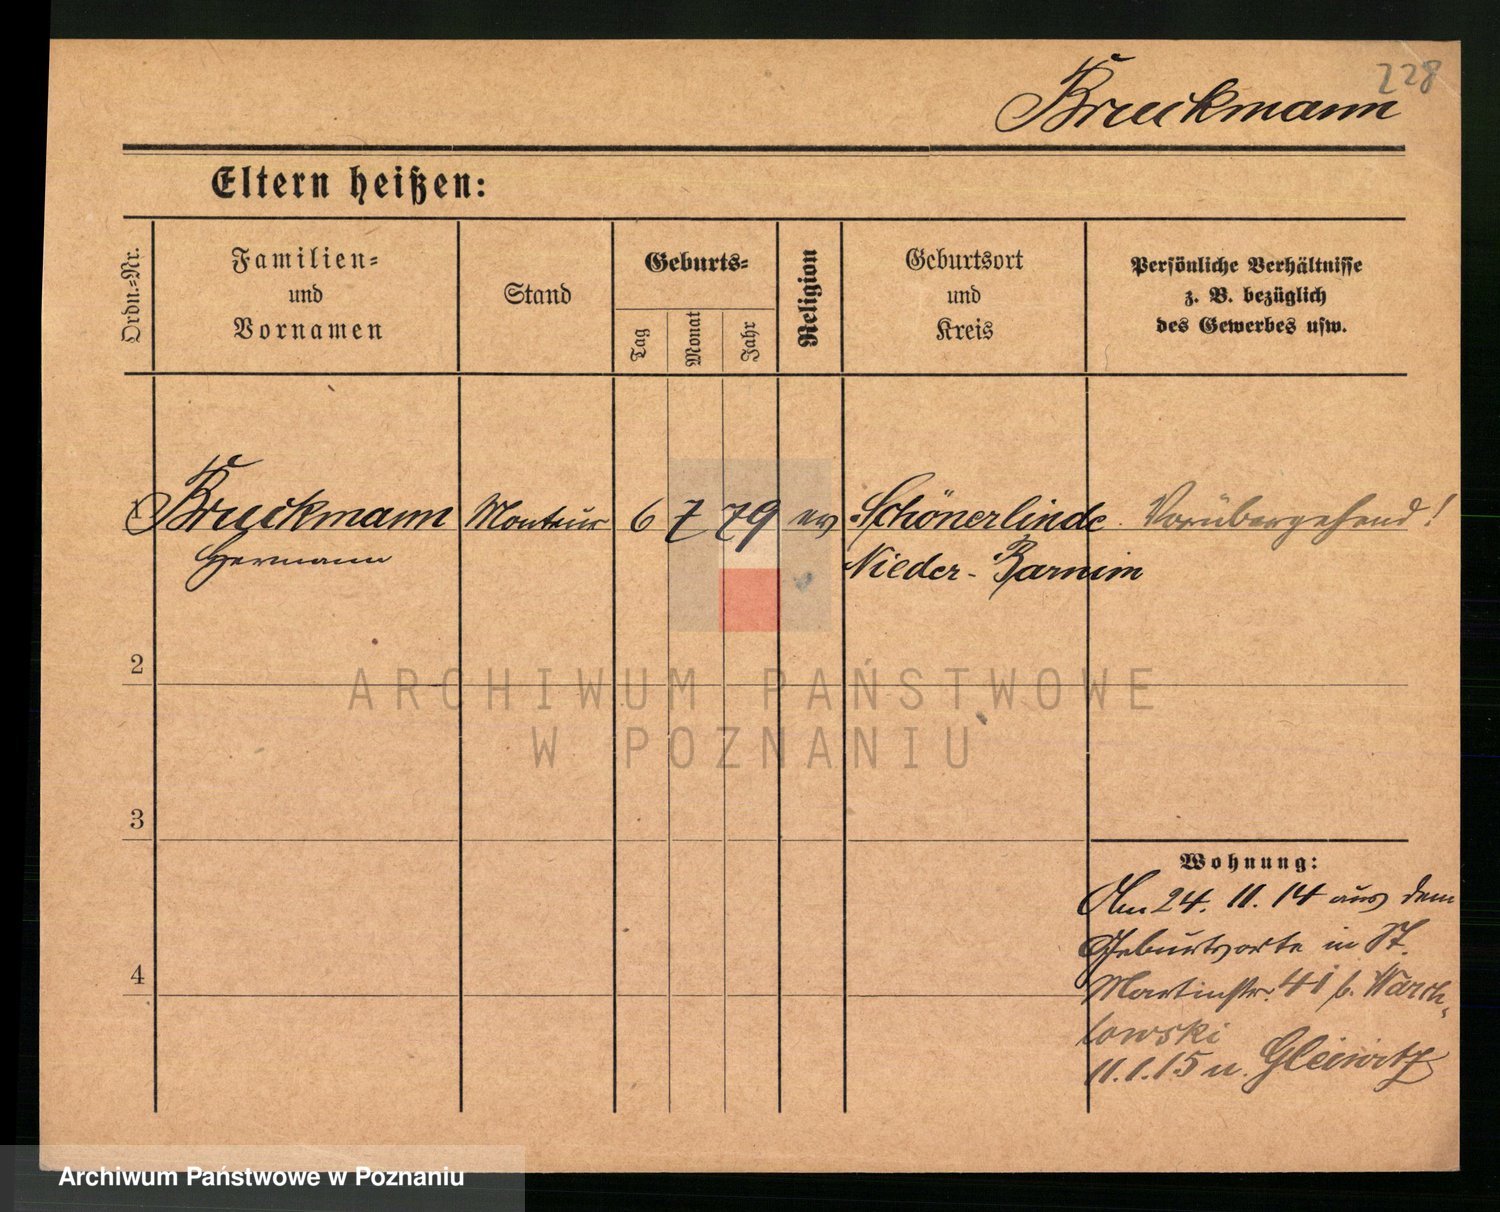 228
Bruckmann
Eltern heißen:
Ordn.-Nr.
Familien-
und
Vornamen
Stand
Geburts-
Tag
Monat
Jahr
Religion
Geburtsort
und
Kreis
Persönliche Verhältnisse
z. B. bezüglich
des Gewerbes usw.
1 Bruckmann Monteur 6 7 79 ev Schönerlinde Vorübergehend!
Hermann Nieder-Barnim
2
ARCHIWUM PAŃSTWOWE
W POZNANIU
3
Wohnung:
Am 24. 11. 14 aus dem
Geburtsorte in St.
4
Martinstr. 41 b. Warch-
lowski
11.1.15 n. Gleiwitz
Archiwum Państwowe w Poznaniu